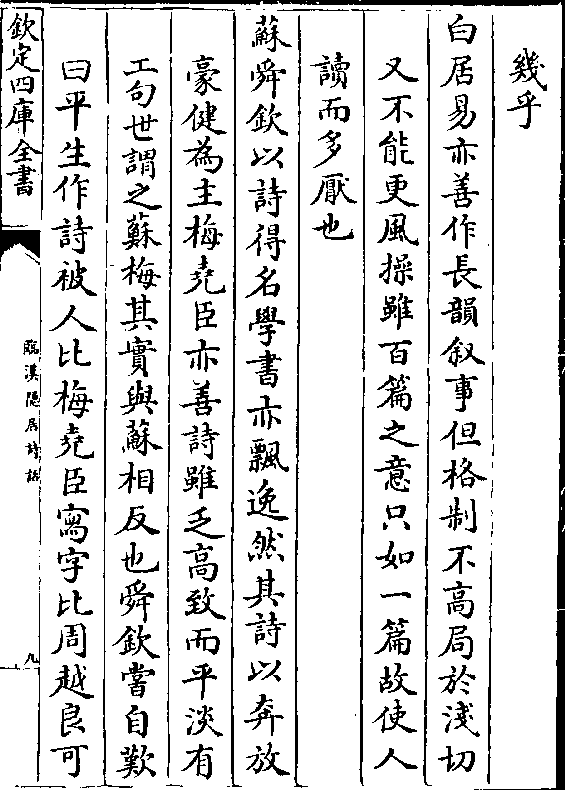 幾乎
白居易亦善作長韻叙事但格制不高局於淺切
又不能更風操雖百篇之意只如一篇故使人
讀而多厭也
蘇舜欽以詩得名學書亦飄逸然其詩以奔放
豪健為主梅堯臣亦善詩雖乏高致而平淡有
工句世謂之蘇梅其實與蘇相反也舜欽嘗自歎
曰平生作詩被人比梅堯臣寫字比周越良可
欽定四庫全書
臨漢隱居詩話
九